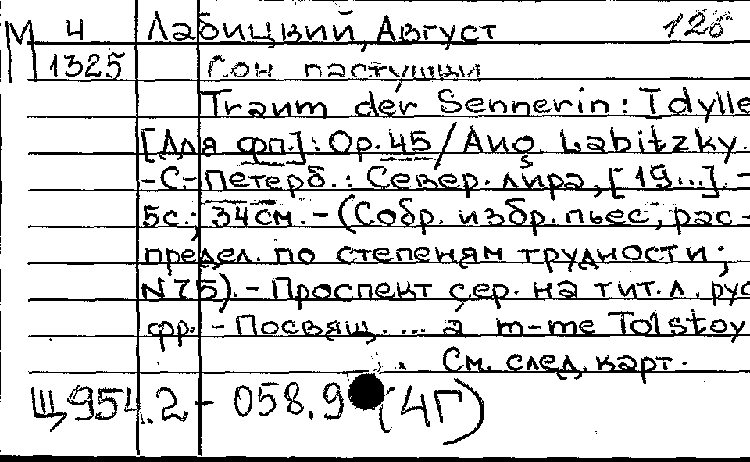 М 4 Лабицкий, Август 126
1325 Сон пастушки
Traum der Sennerin: Idylle
[Для фп.]: Op. 45 / Aug. Labitzky.
-С.-Петерб.: Север. лира, [19...]. -
5с.; 34см. - (Собр. избр. пьес, рас-
предел. по степеням трудности;
N75). - Проспект сер. на тит. л. рус
фр. - Посвящ. ... à m-me Tolstoy
См. след. карт.
Щ954.2 - 058.9 (4Г)